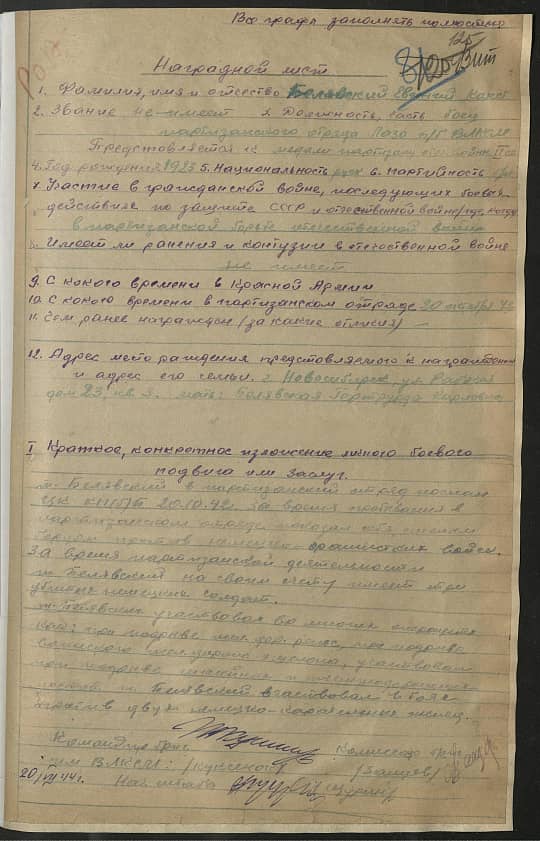 Все графы заполнять полностью
Наградной лист
1. Фамилия, имя и отчество Белявский Евгений
2. Звание не имеет 3. Должность, часть боец
партизанского отряда Лазо п/б ВЛКСМ
Представляется к медали партизану отеч. войны II ст.
4. Год рождения 1923 5. Национальность 6. партийность
7. Участие в гражданской войне, последующих боевых
действиях по защите СССР и отечественной войне /где, когда
в партизанской борьбе отечественной войны
Имеет ли ранения и контузии в отечественной войне
не имеет
9. С какого времени в Красной Армии
10. С какого времени в партизанском отряде 20 октября
11. Чем ранее награжден /за какие отличия/ —
12. Адрес место рождения представляемого к награждению
и адрес его семьи. г. Новосибирск, ул.
дом 23, кв. 3. мать: Белявская Гертруда Карловна
I Краткое, конкретное изложение личного боевого
подвига или заслуг.
т. Белявский в партизанский отряд послан
ЦК КП/б/ 20.10.42 За время пребывания в
партизанском отряде показал себя смелым
бойцом против немецко-фашистских войск.
За время партизанской деятельности
т. Белявский на своем счету имеет три
убитых немецких солдат.
т. Белявский участвовал во многих операциях
при подрыве
эшелона, участвовал
при подрыве
т. Белявский участвовал в боях
против двух немецко-карательных экспед.
Командир бриг. Комиссар бриг.
им ВЛКСМ: /Куксенок/ /Зайцев/
20/VI 44 г. Нач. штаба